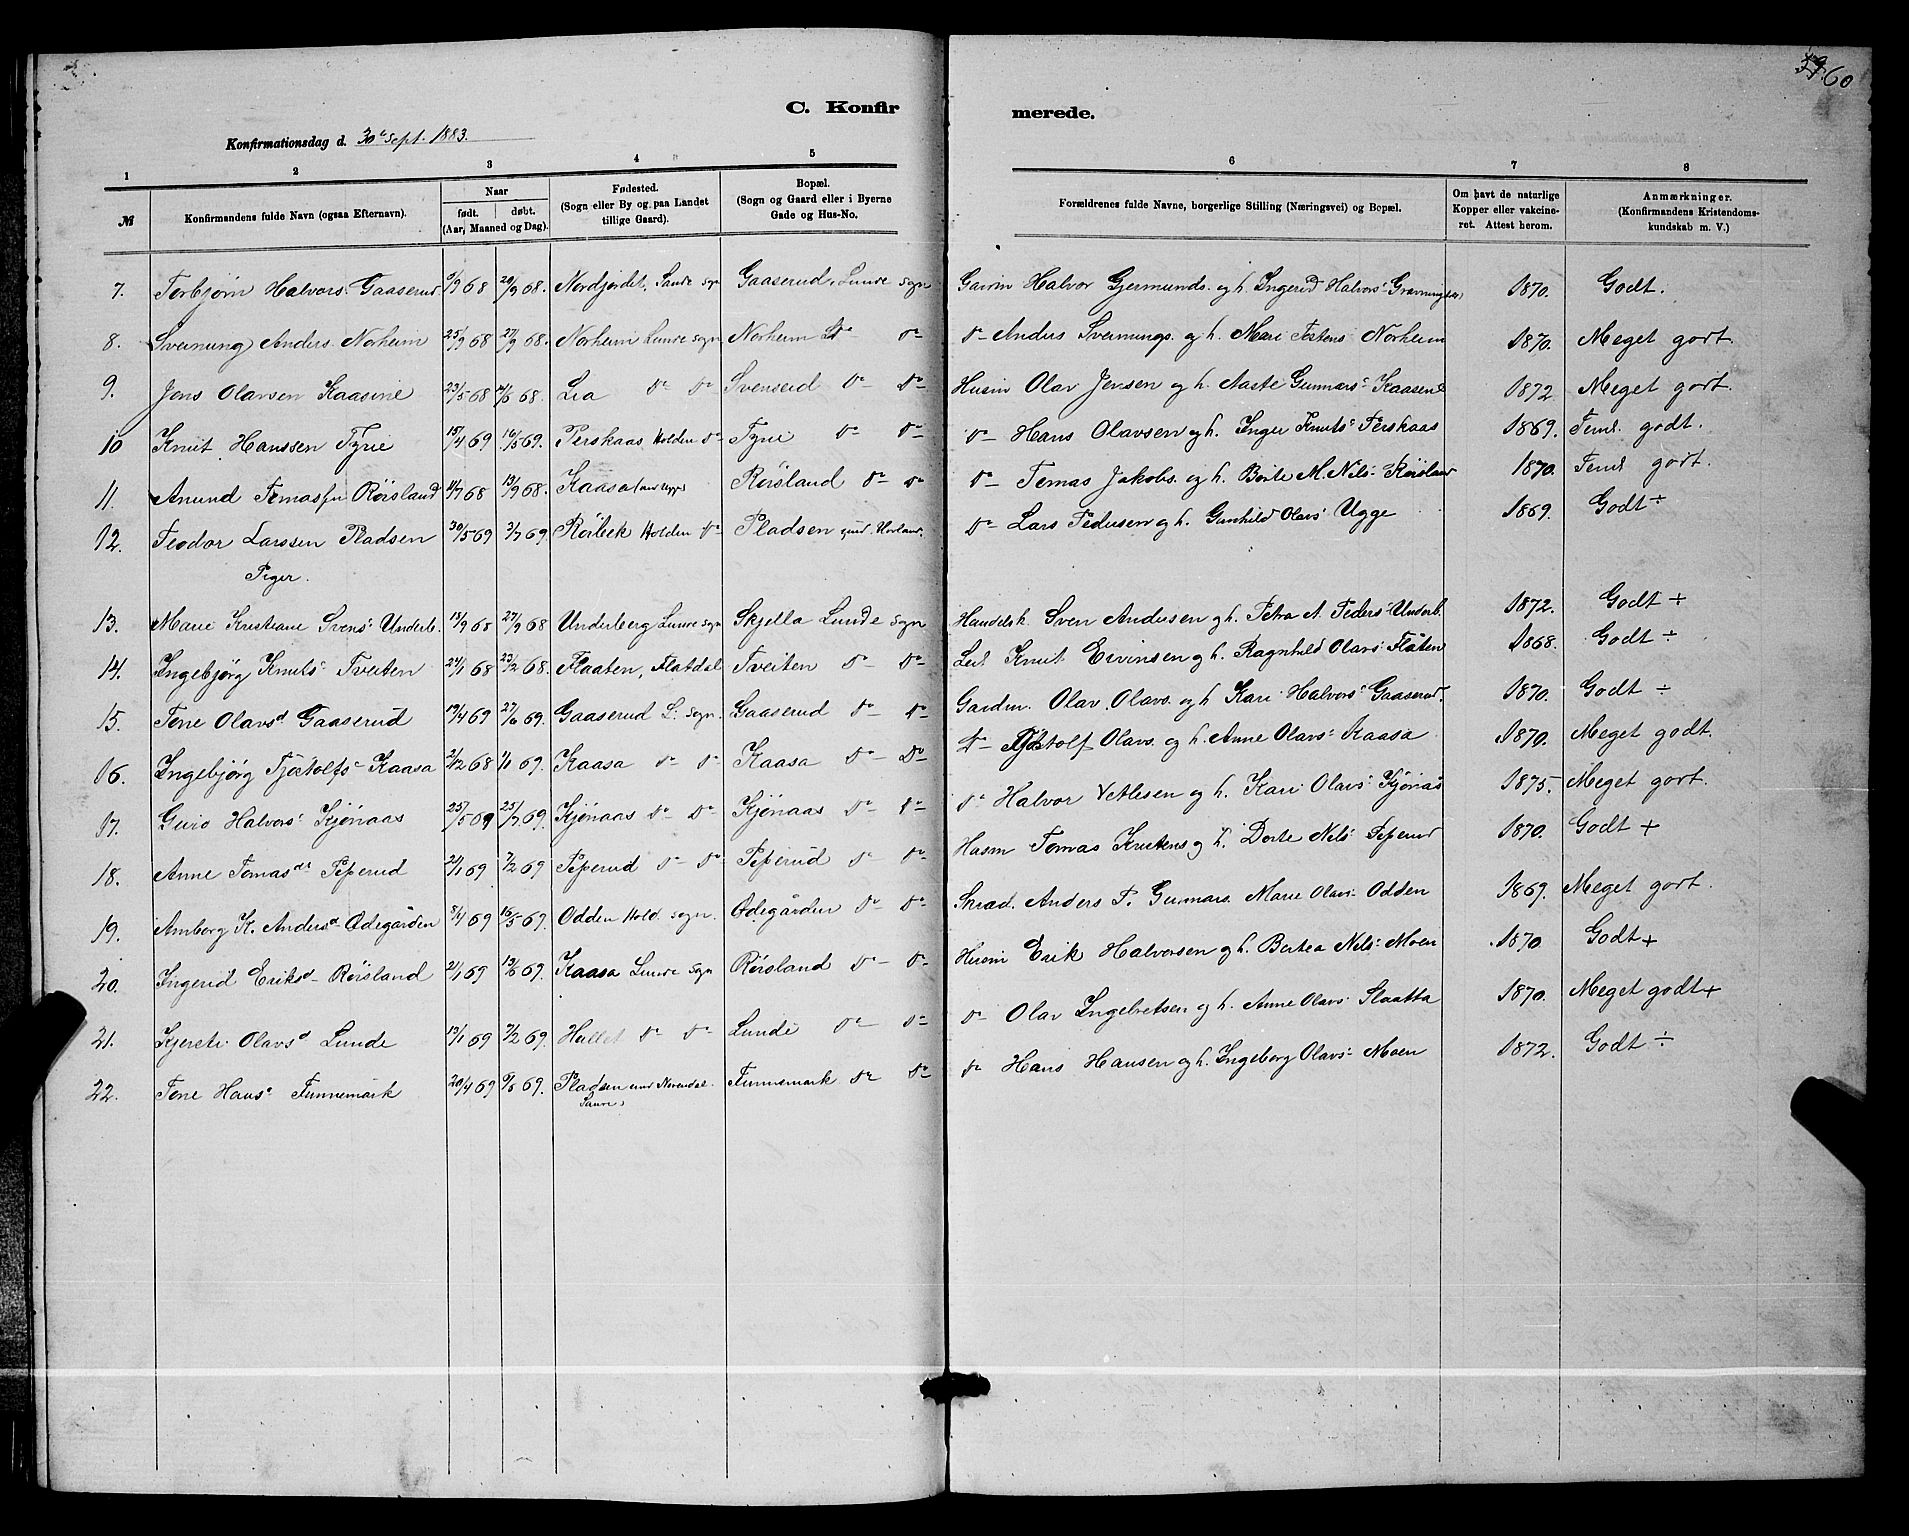 59. 60
C. Konfirmerede.
Konfirmationsdag d. 30e Sept. 1883.
1 2 3 4 5 6 7 8
№ Konfirmandens fulde Navn (ogsaa Efternavn). Naar født. døbt. (Aar, Maaned og Dag). Fødested. (Sogn eller By og paa Landet tillige Gaard). Bopæl. (Sogn og Gaard eller i Byerne Gade og Hus-No. Forældrenes fulde Navne, borgerlige Stilling (Næringsvei) og Bopæl. Om havt de naturlige Kopper eller vakcineret. Attest herom. Anmærkninger. (Konfirmandens Kristendomskundskab m. V.)
7. Torbjørn Halvors. Gaaserud 9/9 68 20/9 68. Nordjordet, Saude sgn Gaaserud, Lunde sogn Halvor Gjermunds. og h. Ingerid Halvors- 1870. Godt.
8. Sveinung Anders. Norheim 25/9 68 27/9 68. Norheim Lunde sogn Norheim Do Do Do Anders Sveinungs. og h. Mari Norheim 1870. Meget godt.
9. Jens Olavsen Kaasine 23/5 68 68. Lia Do Do Svenseid Do Do Husm Olav Jensen og h. Aaste Gunnars- Kaasene 1872 Meget godt.
10 Knut Hanssen Tyrie 15/4 69 16/5 69. Perskaas Holden Do Tyri Do Do Do Hans Olavsen og h. Inger Knuts- Perskaas 1869. Teml. godt.
11. Anund Tomassen Røisland 4/7 68 13/9 68. Kaasa Røisland Do Do Do Tomas Jakobs. og h. Berte M. Nils- Røisland 1870. Teml godt.
12. Teodor Larssen Pladsen 30/5 69 3/7 69 Røibek Holden Do Pladsen und. Do Lars Pedersen og h. Gunhild Olavs- Ugge 1869. Godt ÷
Piger.
13. Marie Kristiane Svens- Underb. 15/9 68 27/9 68 Underberg Lunde sogn Skjella Lunde sogn Handelsk Sven Andersen og h. Petra A. Peders- Underb. 1872. Godt +
14. Ingebjørg Knuts- Tveiten 24/1 68 23/2 68. Flaaten, Flatdal Tveiten Do Do Knut Eivinsen og h. Ragnhild Olavs- Flåten 1868. Godt ÷
15. Tone Olavsd Gaaserud 19/4 69 69. Gaaserud L. sogn. Gaaserud Do Do Gardm. Olav Olavs. og h. Kari Halvors- Gaaserud. 1870. Godt ÷
16. Ingebjørg Tjøstolfs- Kaasa 2/12 68 1/1 69. Kaasa Do Do Kaasa Do Do Do Tjøstolf Olavs. og h. Anne Olavs- Kaasa 1870. Meget godt.
17. Guro Halvors- Kjønaas 25/5 69 25/7 69. Kjønaas Do Do Kjønaas Do Do Do Halvor Vetlesen og h. Kari Olavs- Kjønås 1875. Meget godt.
18. Anne Tomasdr Peperud 24/1 69 7/2 69. Peperud Do Do Peperud Do Do Husm Tomas Kristens og h. Dorte Nils- Peperud 1870. Godt +
19. Amborg K. Andersd Ødegården 8/4 69 16/5 69. Odden Hold. sogn. Ødegården Do Do Skræd. Anders P. Gunnars. Marie Olavs- Odden 1869. Meget godt.
20. Ingerid Eriksd Røisland 2/1 69 69. Kaasa Lunde sogn Røisland Do Do Husm Erik Halvorsen og h. Bertea Nils- Moen 1870. Godt +
21. Kjersti Olavsd Lunde 13/1 69 7/2 69. Hallet Do Do Lunde Do Do Do Olav Ingebretsen og h. Anne Olavs- Slaatta 1870. Meget godt +
22. Tone Hans- Finnemark 20/4 69 69. Pladsen und Saude Finnemark Do Do Do Hans Hansen og h. Ingeborg Olavs- Moen 1872. Godt ÷